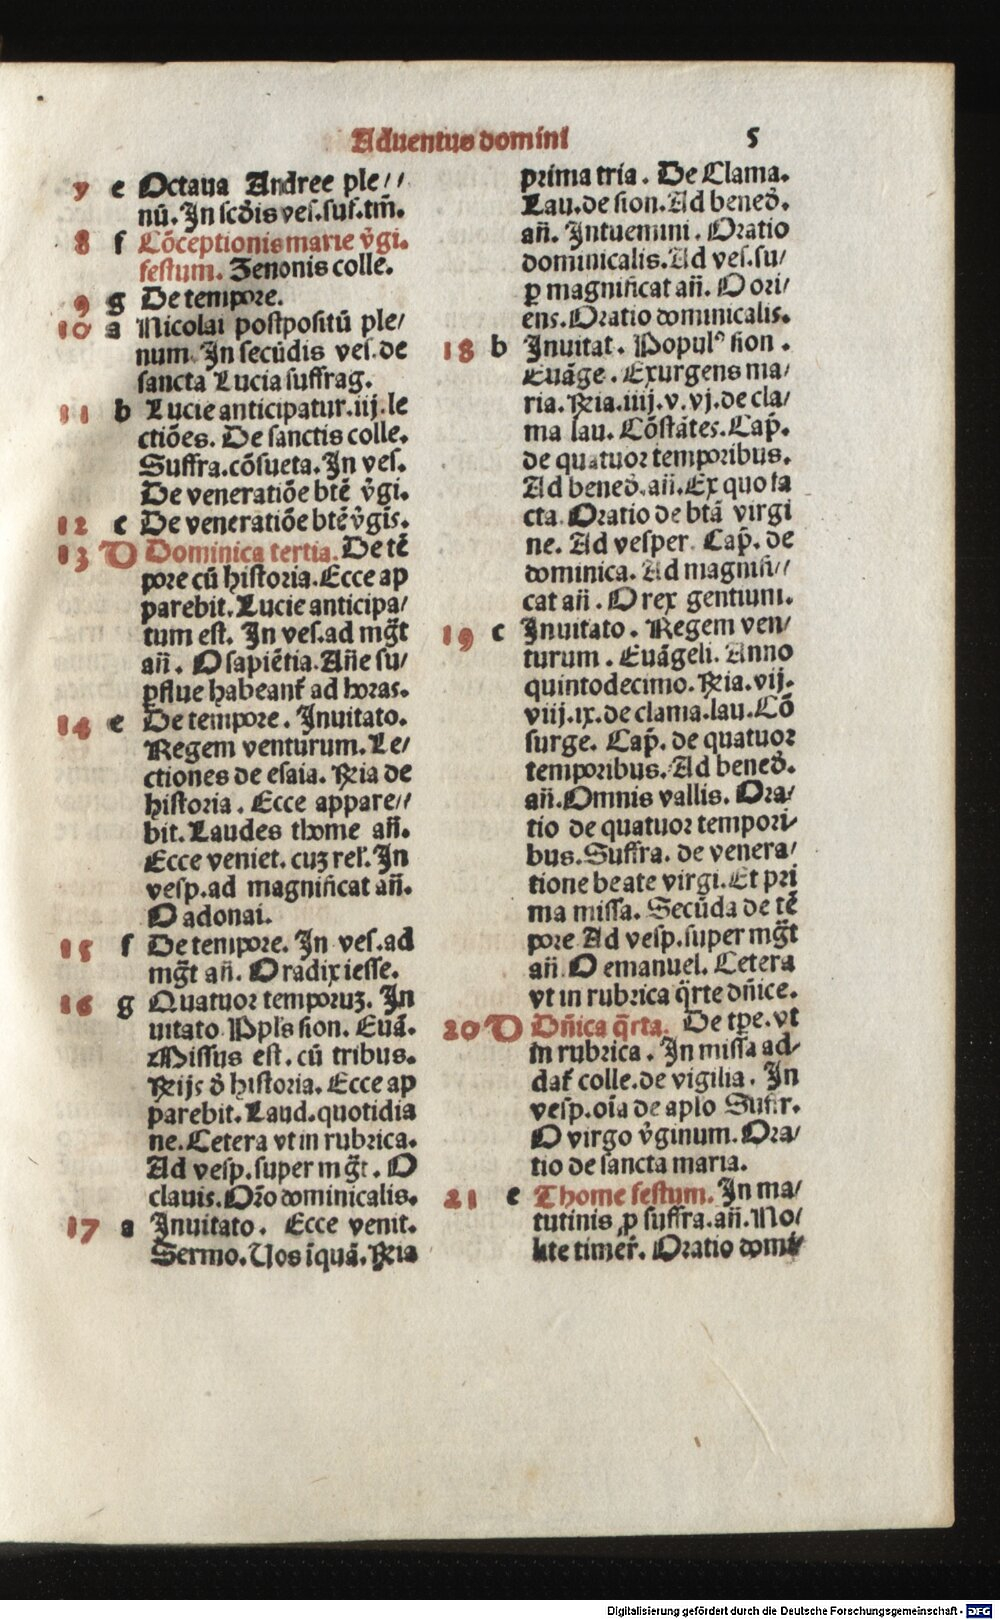 Aduentus domini 5
7 e Octaua Andree ple//
nū. In scd̓is ves. suf. tm̄.
8 f Cōceptionis marie v̓gi.
festum. Zenonis colle.
9 g De tempore.
10 a Nicolai postpositū ple/
num. In secūdis ves. de
sancta Lucia suffrag.
11 b Lucie anticipatur. iij. le
ctiōes. De sanctis colle.
Suffra. cōsueta. In ves.
De veneratiōe btē v̓gi.
12 c De veneratiōe btē v̓gis.
13 D Dominica tertia. De tē
pore cū historia. Ecce ap
parebit. Lucie anticipa/
tum est. In ves. ad mg̃t
an̄. O sapiētia. Ān̄e su/
ꝑflue habeant᷑ ad horas.
14 e De tempore. Inuitato.
Regem venturum. Le/
ctiones de esaia. R̃ia de
historia. Ecce appare//
bit. Laudes thome an̄.
Ecce veniet. cuꝫ rel̓. In
vesp. ad magnificat an̄.
O adonai.
15 f De tempore. In ves. ad
mg̃t an̄. O radix iesse.
16 g Quatuor temporuꝫ. In
uitato Ppl̓s sion. Euā.
Missus est. cū tribus.
R̃ijs d̓ historia. Ecce ap
parebit. Laud. quotidia
ne. Cetera vt in rubrica.
Ad vesp. super mg̃t. O
clauis. Or̃o dominicalis.
17 a Inuitato. Ecce venit.
Sermo. Uos īquā. R̃ia
prima tria. De Clama.
Lau. de sion. Ad bened̓.
an̄. Intuemini. Oratio
dominicalis. Ad ves. su/
ꝑ magnificat an̄. O ori/
ens. Oratio dominicalis.
18 b Inuitat. Popul᷒ sion.
Euāge. Exurgens ma/
ria. R̃ia. iiij. v. vj. de cla/
ma lau. Cōstātes. Cap̄.
de quatuor temporibus.
Ad bened̓. an̄. Ex quo fa
cta. Oratio de btā virgi
ne. Ad vesper. Cap̄. de
dominica. Ad magnifi//
cat an̄. O rex gentium.
19 c Inuitato. Regem ven/
turum. Euāgeli. Anno
quintodecimo. R̃ia. vij.
viij. ix. de clama. lau. Cō
surge. Cap̄. de quatuor
temporibus. Ad bened̓.
an̄. Omnis vallis. Ora/
tio de quatuor tempori/
bus. Suffra. de venera/
tione beate virgi. Et pri
ma missa. Secūda de tē
pore Ad vesp. super mg̃t
an̄. O emanuel. Cetera
vt in rubrica q̃rte dn̄ice.
20 D Dn̄ica q̃rta. De tꝑe. vt
in rubrica. In missa ad/
dat᷑ colle. de vigilia. In
vesp. oīa de aplo Suffr.
O virgo v̓ginum. Ora/
tio de sancta maria.
21 e Thome festum. In ma/
tutinis ꝓ suffra. an̄. No/
lite timer̃. Oratio domi/
Digitalisierung gefördert durch die Deutsche Forschungsgemeinschaft - DFG